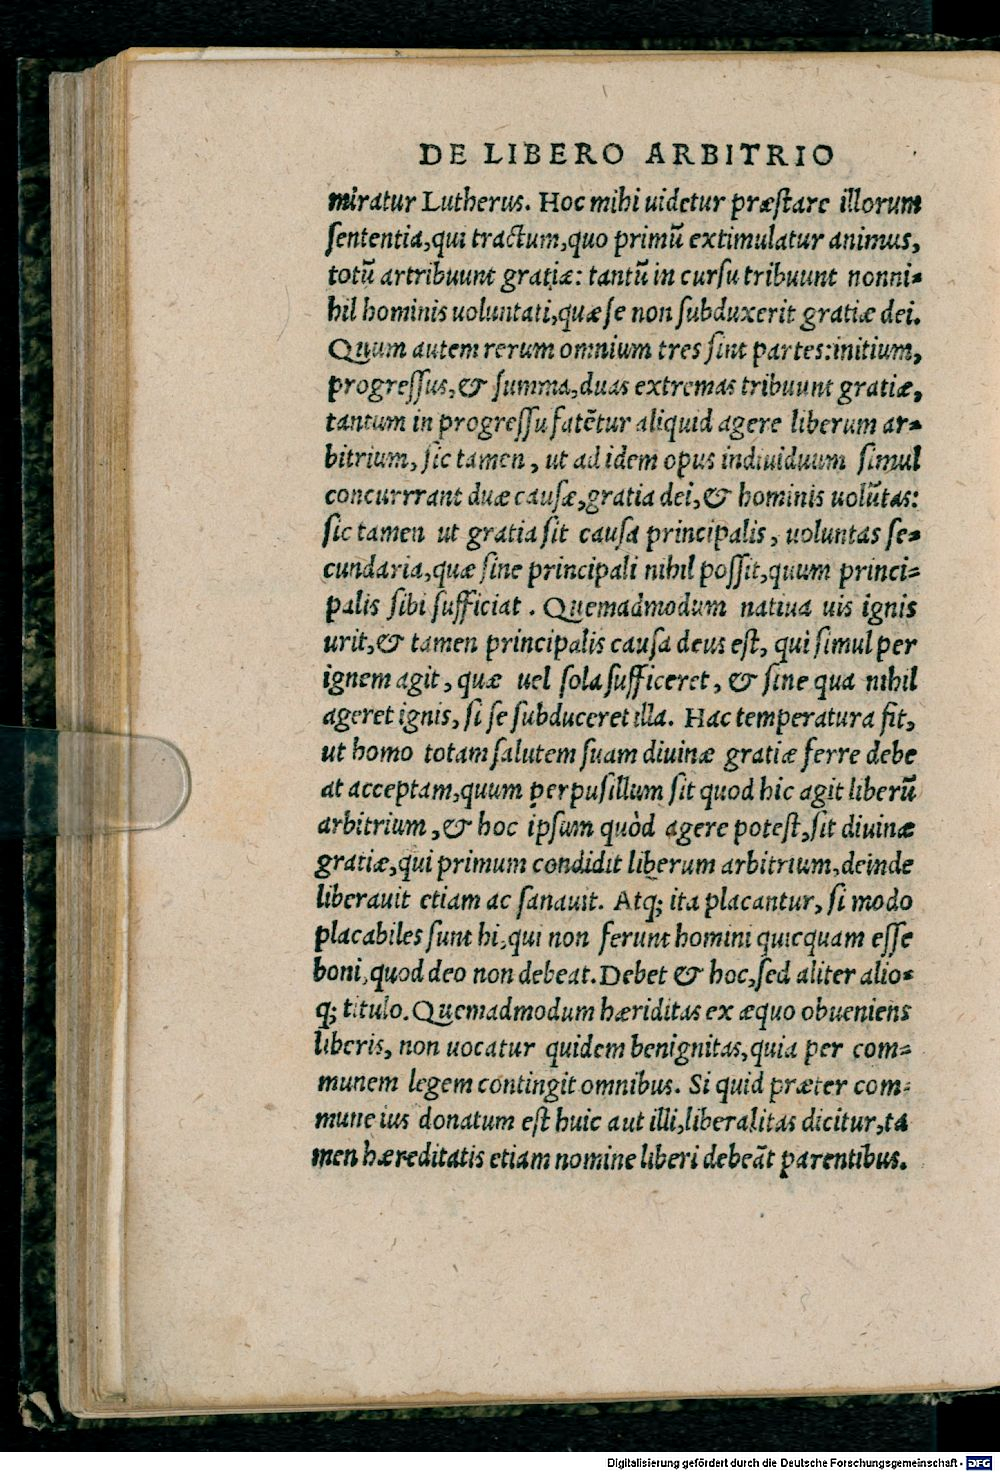 DE LIBERO ARBITRIO
miratur Lutherus. Hoc mihi uidetur præstare illorum
sententia, qui tractum, quo primũ extimulatur animus,
totũ artribuunt gratiæ: tantũ in cursu tribuunt nonni-
hil hominis uoluntati, quæ se non subduxerit gratiæ dei.
Quum autem rerum omnium tres sint partes: initium,
progressus, & summa, duas extremas tribuunt gratiæ,
tantum in progressu fatẽtur aliquid agere liberum ar-
bitrium, sic tamen, ut ad idem opus indiuiduum simul
concurrrant duæ causæ, gratia dei, & hominis uolũtas:
sic tamen ut gratia sit causa principalis, uoluntas se-
cundaria, quæ sine principali nihil possit, quum princi-
palis sibi sufficiat. Quemadmodum natiua uis ignis
urit, & tamen principalis causa deus est, qui simul per
ignem agit, quæ uel sola sufficeret, & sine qua nihil
ageret ignis, si se subduceret illa. Hac temperatura fit,
ut homo totam salutem suam diuinæ gratiæ ferre debe
at acceptam, quum perpusillum sit quod hic agit liberũ
arbitrium, & hoc ipsum quòd agere potest, sit diuinæ
gratiæ, qui primum condidit liberum arbitrium, deinde
liberauit etiam ac sanauit. Atq; ita placantur, si modo
placabiles sunt hi, qui non ferunt homini quicquam esse
boni, quod deo non debeat. Debet & hoc, sed aliter alio-
q; titulo. Quemadmodum hæriditas ex æquo obueniens
liberis, non uocatur quidem benignitas, quia per com-
munem legem contingit omnibus. Si quid præter com-
mune ius donatum est huic aut illi, liberalitas dicitur, ta
men hæreditatis etiam nomine liberi debeãt parentibus.
Digitalisierung gefördert durch die Deutsche Forschungsgemeinschaft - DFG